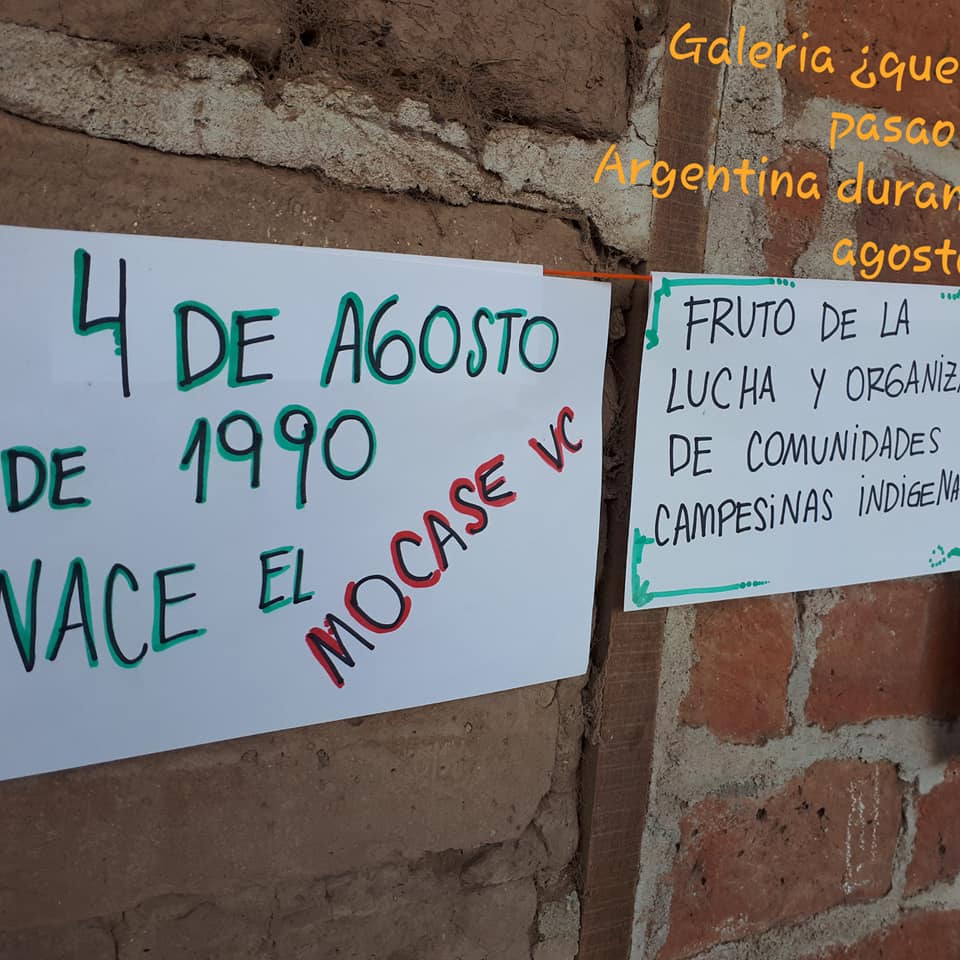 Galeria ¿que
pasao
Argentina duran
agosto
4 DE AGOSTO
DE 1990
NACE EL
MOCASE VC
FRUTO DE LA
LUCHA Y ORGANIZA
DE COMUNIDADES
CAMPESINAS INDIGENA